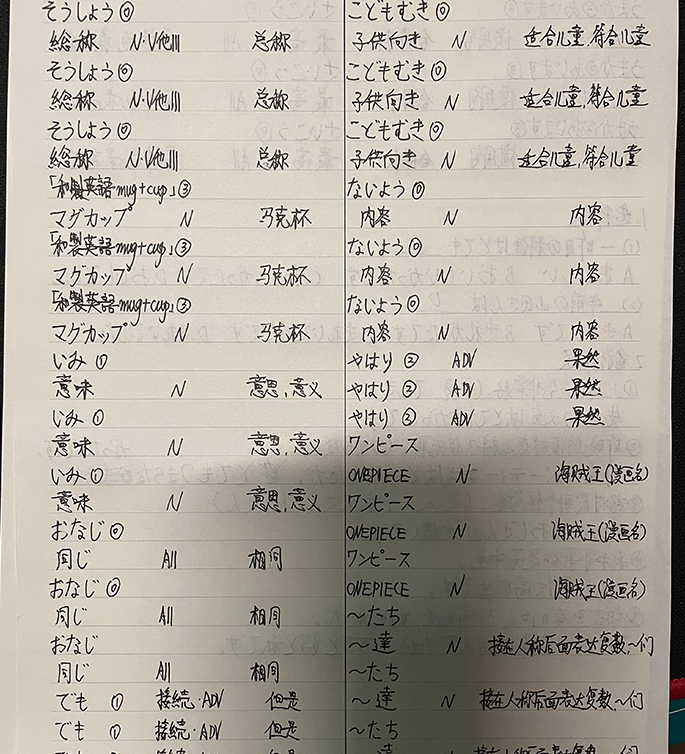 そうしょう⓪
総称 N·V他Ⅲ 总称
そうしょう⓪
総称 N·V他Ⅲ 总称
そうしょう⓪
総称 N·V他Ⅲ 总称
「和製英語mug+cup」③
マグカップ N 马克杯
「和製英語mug+cup」③
マグカップ N 马克杯
「和製英語mug+cup」③
マグカップ N 马克杯
いみ①
意味 N 意思,意义
いみ①
意味 N 意思,意义
いみ①
意味 N 意思,意义
おなじ⓪
同じ AⅡ 相同
おなじ⓪
同じ AⅡ 相同
おなじ
同じ AⅡ 相同
でも ① 接続·ADV 但是
でも ① 接続·ADV 但是
こどもむき⓪
子供向き N 适合儿童,符合儿童
こどもむき⓪
子供向き N 适合儿童,符合儿童
こどもむき⓪
子供向き N 适合儿童,符合儿童
ないよう⓪
内容 N 内容
ないよう⓪
内容 N 内容
ないよう⓪
内容 N 内容
やはり ② ADV 果然
やはり ② ADV 果然
やはり ② ADV 果然
ワンピース
ONEPIECE N 海贼王(漫画名)
ワンピース
ONEPIECE N 海贼王(漫画名)
ワンピース
ONEPIECE N 海贼王(漫画名)
～たち
～達 N 接在人称后面表达复数～们
～たち
～達 N 接在人称后面表达复数～们
～たち